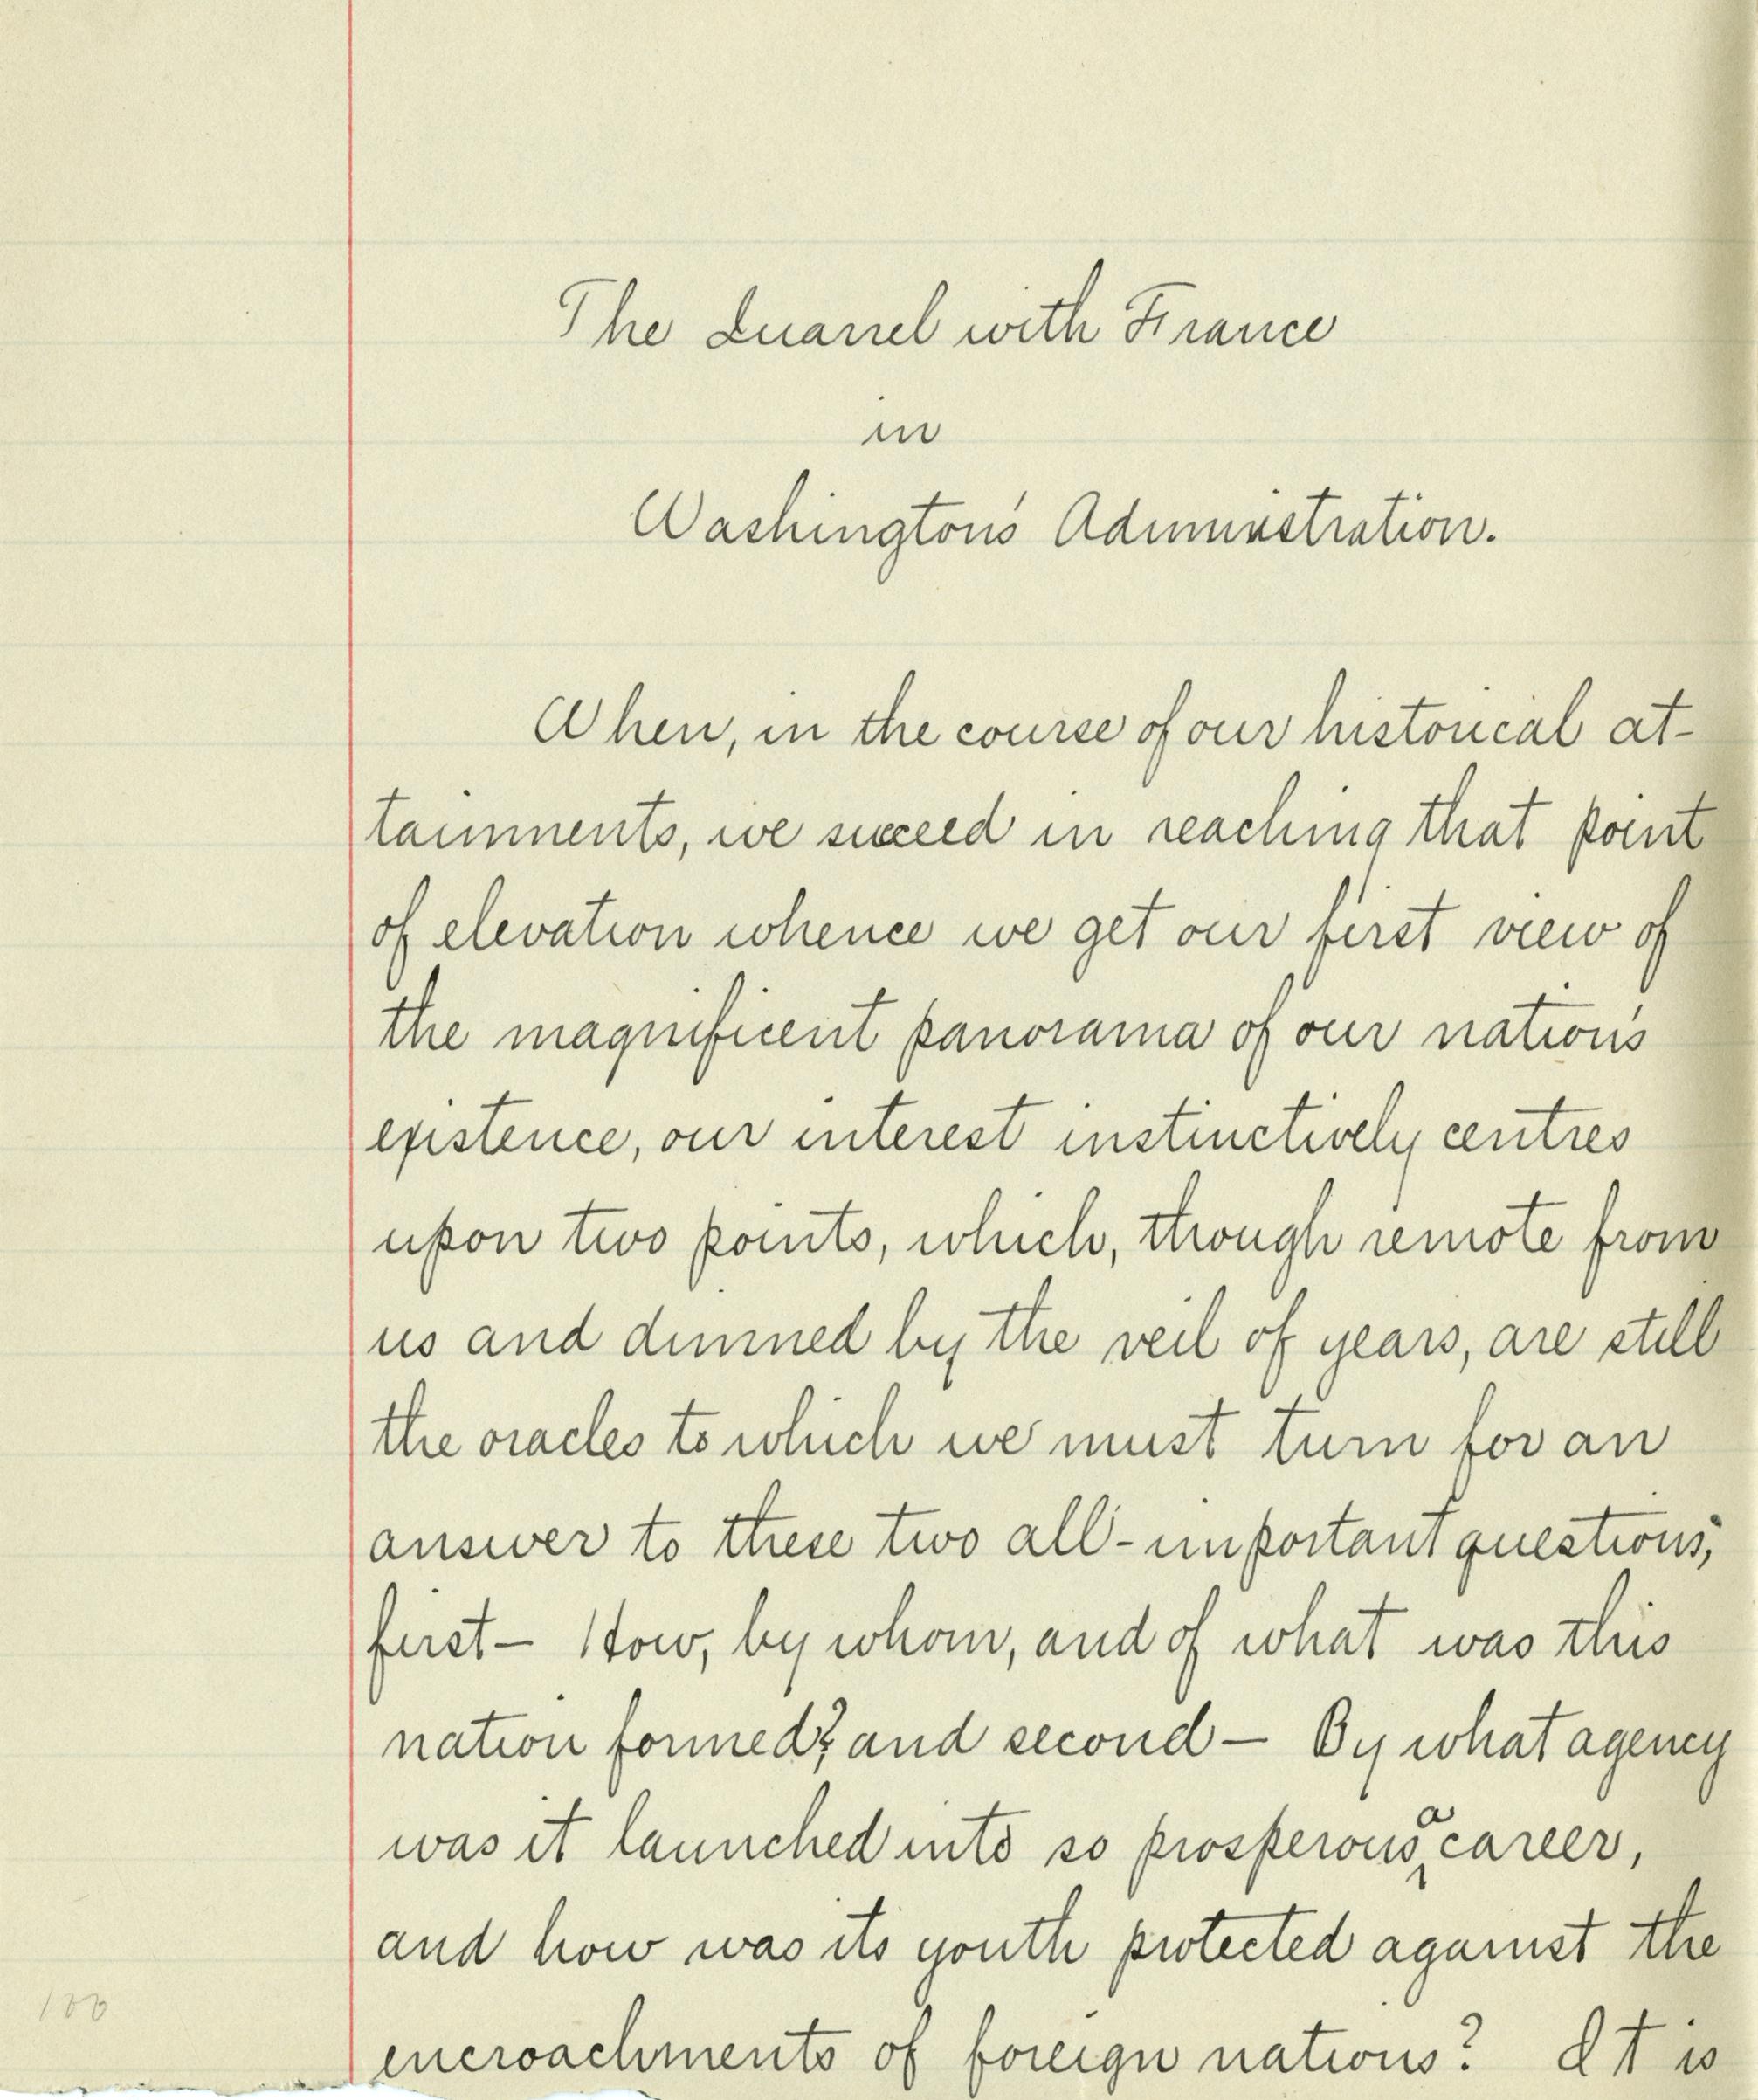 The Quarrel with France
in
Washington's Administration.
When, in the course of our historical at-
tainments, we succeed in reaching that point
of elevation whence we get our first view of
the magnificent panorama of our nation's
existence, our interest instinctively centres
upon two points, which, though remote from
us and dimmed by the veil of years, are still
the oracles to which we must turn for an
answer to these two all-important questions;
first— How, by whom, and of what was this
nation formed? and second— By what agency
was it launched into so prosperous a career,
and how was its youth protected against the
encroachments of foreign nations? It is